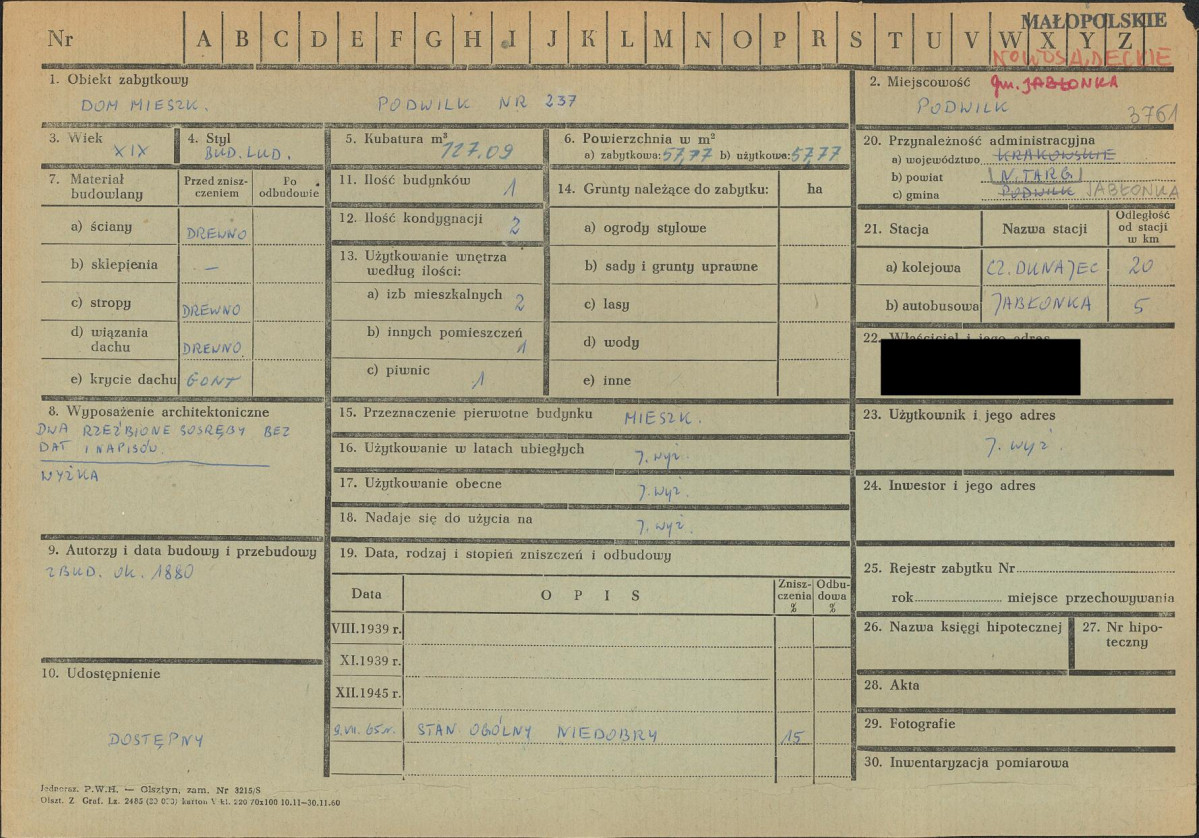 MAŁOPOLSKIE
Nr A B C D E F G H I J K L M N O P R S T U V W X Y Z
NOWOSĄDECKIE
1. Obiekt zabytkowy
DOM MIESZK. PODWILK NR 237
2. Miejscowość gm. JABŁONKA
PODWILK 3761
3. Wiek
XIX
4. Styl
BUD. LUD.
5. Kubatura m³
127.09
6. Powierzchnia w m²
a) zabytkowa: 57,77 b) użytkowa: 57,77
20. Przynależność administracyjna
a) województwo KRAKOWSKIE
b) powiat N. TARG
c) gmina PODWILK JABŁONKA
7. Materiał budowlany
Przed zniszczeniem
Po odbudowie
a) ściany DREWNO
b) sklepienia —
c) stropy DREWNO
d) wiązania dachu DREWNO
e) krycie dachu GONT
11. Ilość budynków 1
12. Ilość kondygnacji 2
13. Użytkowanie wnętrza
według ilości:
a) izb mieszkalnych 2
b) innych pomieszczeń 1
c) piwnic 1
14. Grunty należące do zabytku: ha
a) ogrody stylowe
b) sady i grunty uprawne
c) lasy
d) wody
e) inne
21. Stacja Nazwa stacji Odległość od stacji w km
a) kolejowa CZ. DUNAJEC 20
b) autobusowa JABŁONKA 5
22. Właściciel i jego adres
8. Wyposażenie architektoniczne
DWA RZEŹBIONE SOSRĘBY BEZ
DAT I NAPISÓW.
WYŻKA
15. Przeznaczenie pierwotne budynku MIESZK.
16. Użytkowanie w latach ubiegłych J. wyż.
17. Użytkowanie obecne J. wyż.
18. Nadaje się do użycia na J. wyż.
23. Użytkownik i jego adres
J. wyż.
24. Inwestor i jego adres
9. Autorzy i data budowy i przebudowy
ZBUD. OK. 1880
19. Data, rodzaj i stopień zniszczeń i odbudowy
Data OPIS Zniszczenia % Odbudowa %
VIII.1939 r.
XI.1939 r.
XII.1945 r.
9.VII.65r. STAN OGÓLNY NIEDOBRY 15
25. Rejestr zabytku Nr
rok miejsce przechowywania
26. Nazwa księgi hipotecznej
27. Nr hipoteczny
28. Akta
29. Fotografie
30. Inwentaryzacja pomiarowa
10. Udostępnienie
DOSTĘPNY
Jednoraz. P.W.H. — Olsztyn, zam. Nr 3215/S
Olszt. Z. Graf. Lz. 2485 (20 000) karton V kl. 220 70x100 10.11—30.11.60